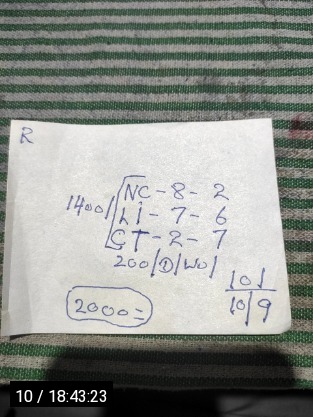 R
NC - 8 - 2
1400/ LI - 7 - 6
GT - 2 - 7
200/D/WO/
101
10/9
2000=
10 / 18:43:23